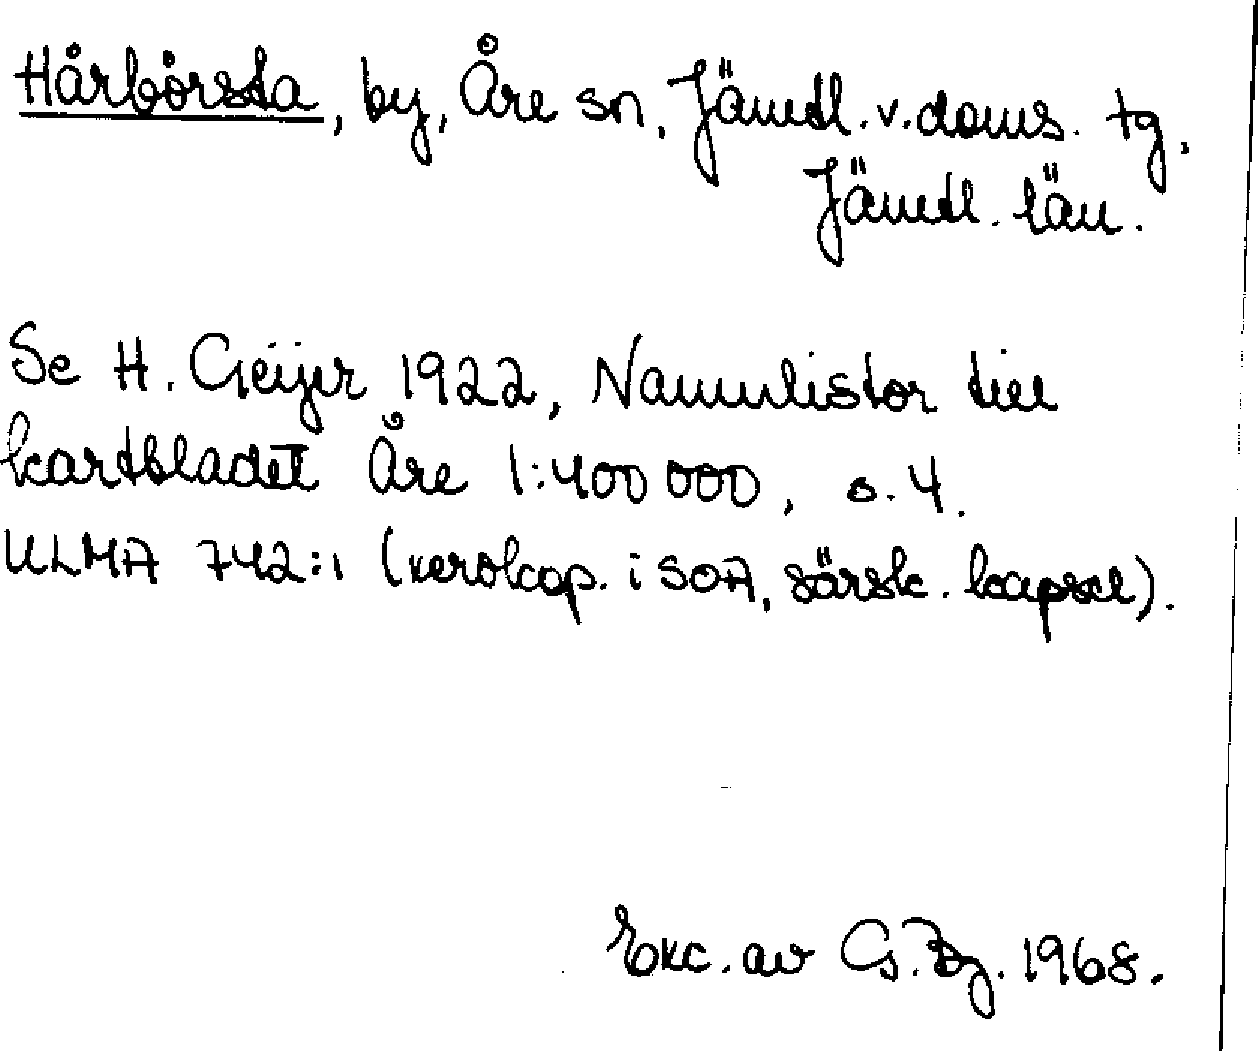 Hårbörsta, by, Åre sn, Jämtl. v. doms. tg,
Jämtl. län.
Se H. Geijer 1922, Namnlistor till
kartbladet Åre 1:400 000, s. 4.
ULMA 742:1 (xerokop. i SOA, särsk. kapsel).
Exc. av G. Bg. 1968.